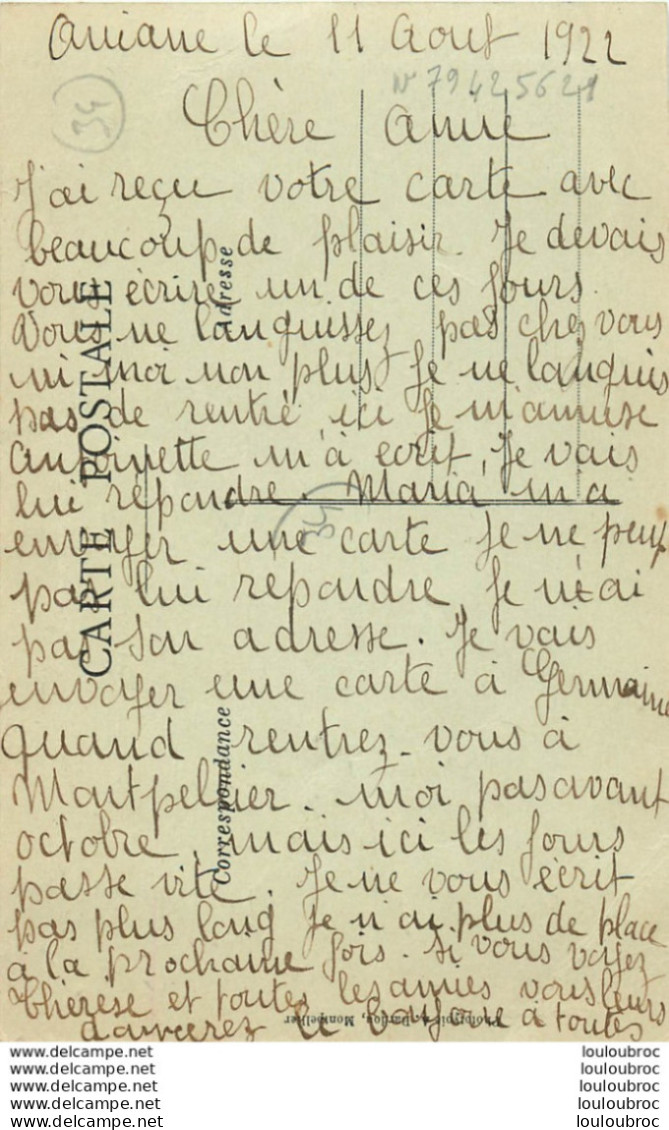 Aniane le 11 Aout 1922
N° 79425621
34
Chère Amie
J'ai reçu votre carte avec
beaucoup de plaisir. Je devais
vous écrire un de ces jours.
Vous ne languissez pas chez vous
ni moi non plus Je ne languis
pas de rentré ici Je m'amuse
Antoinette m'à ecrit, Je vais
lui repondre. Maria m'a
envoyer une carte Je ne peux
pas lui repondre, Je n'ai
pas son adresse. Je vais
envoyer une carte à Germaine
quand rentrez-vous à
Montpellier. moi pas avant
octobre, mais ici les jours
passe vite. Je ne vous écrit
pas plus long Je n'ai plus de place
à la prochaine fois. si vous voyez
Thérèse et toutes les amies vous leurs
donnerez le bonjour à toutes
CARTE POSTALE
Correspondance
Adresse
34
Montpellier
www.delcampe.net
www.delcampe.net
www.delcampe.net
www.delcampe.net
www.delcampe.net
louloubroc
louloubroc
louloubroc
louloubroc
louloubroc